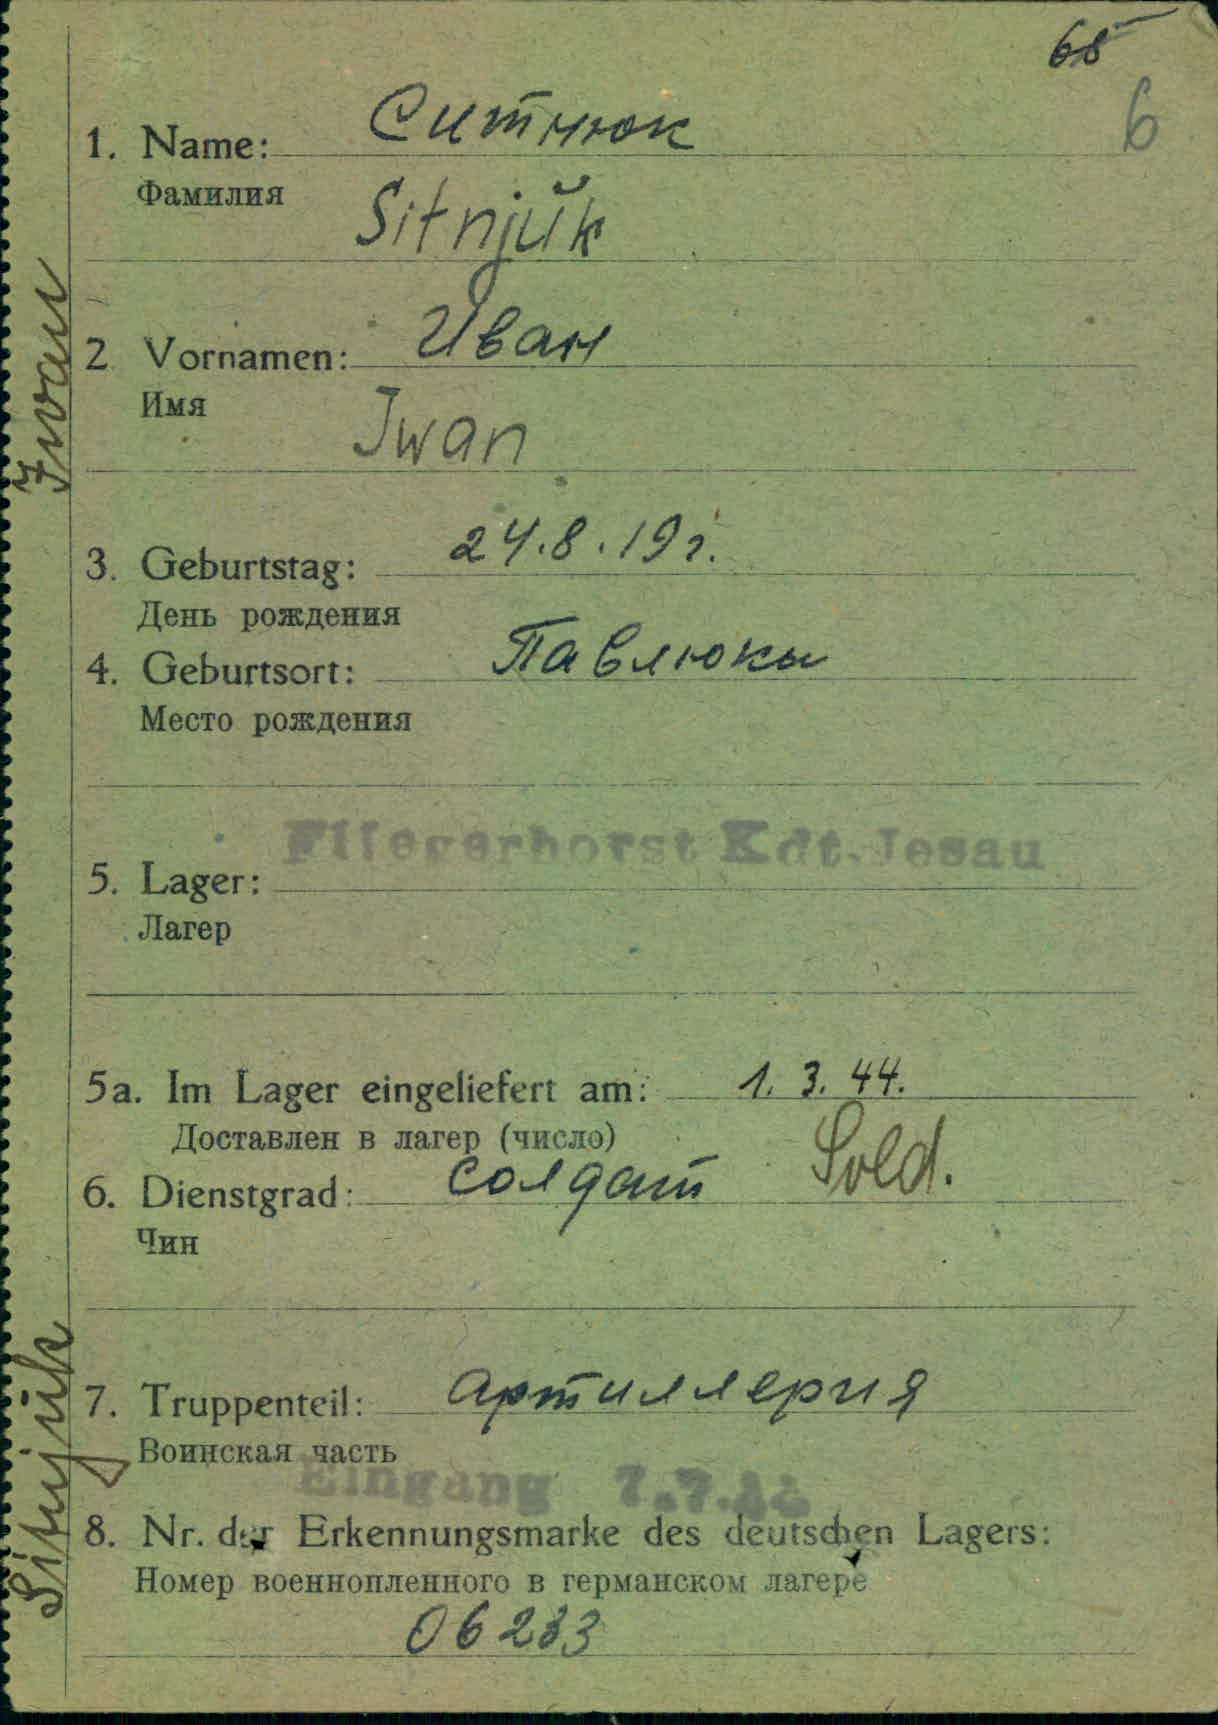 65
6
1. Name: Ситнюк
Фамилия
Sitnjŭk
2 Vornamen: Иван
Имя
Iwan
3. Geburtstag: 24.8.19 г.
День рождения
4. Geburtsort: Павлюки
Место рождения
Fliegerhorst Kdt. Jesau
5. Lager:
Лагер
5a. Im Lager eingeliefert am: 1. 3. 44.
Доставлен в лагер (число)
6. Dienstgrad: солдат Sold.
Чин
7. Truppenteil: артиллерия
Воинская часть
Eingang 7.7.44
8. Nr. der Erkennungsmarke des deutschen Lagers:
Номер военнопленного в германском лагере
06233
Sitnjŭk Iwan